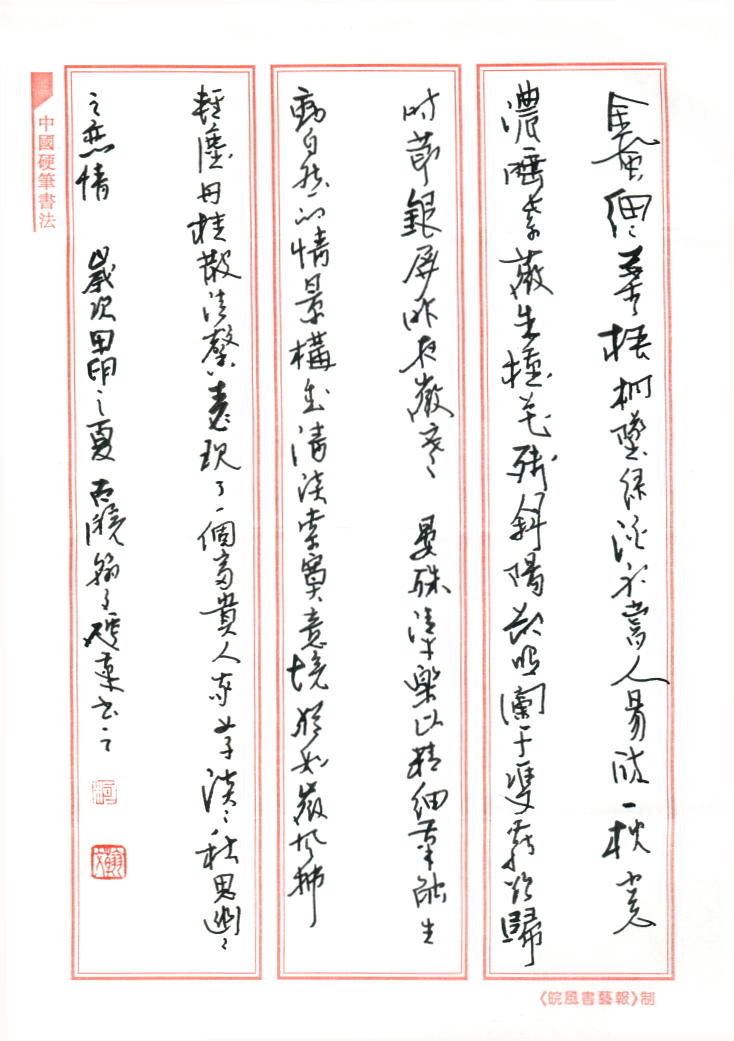 中國硬筆書法
金風細々葉々梧桐墜綠酒初嘗人易醉一枕小窗
濃睡紫薇朱槿花殘斜陽却照闌干雙燕欲歸
時節銀屏昨夜微寒 晏殊清平樂以精細筆触生
動自然的情景構出清淡索寞意境猶如微風拂
輕塵丹桂散清馨表現了一個富貴人家女子淡々秋思幽々
之愁情 歲次卯之夏 古皖翰硬筆書之
《皖風書藝報》制